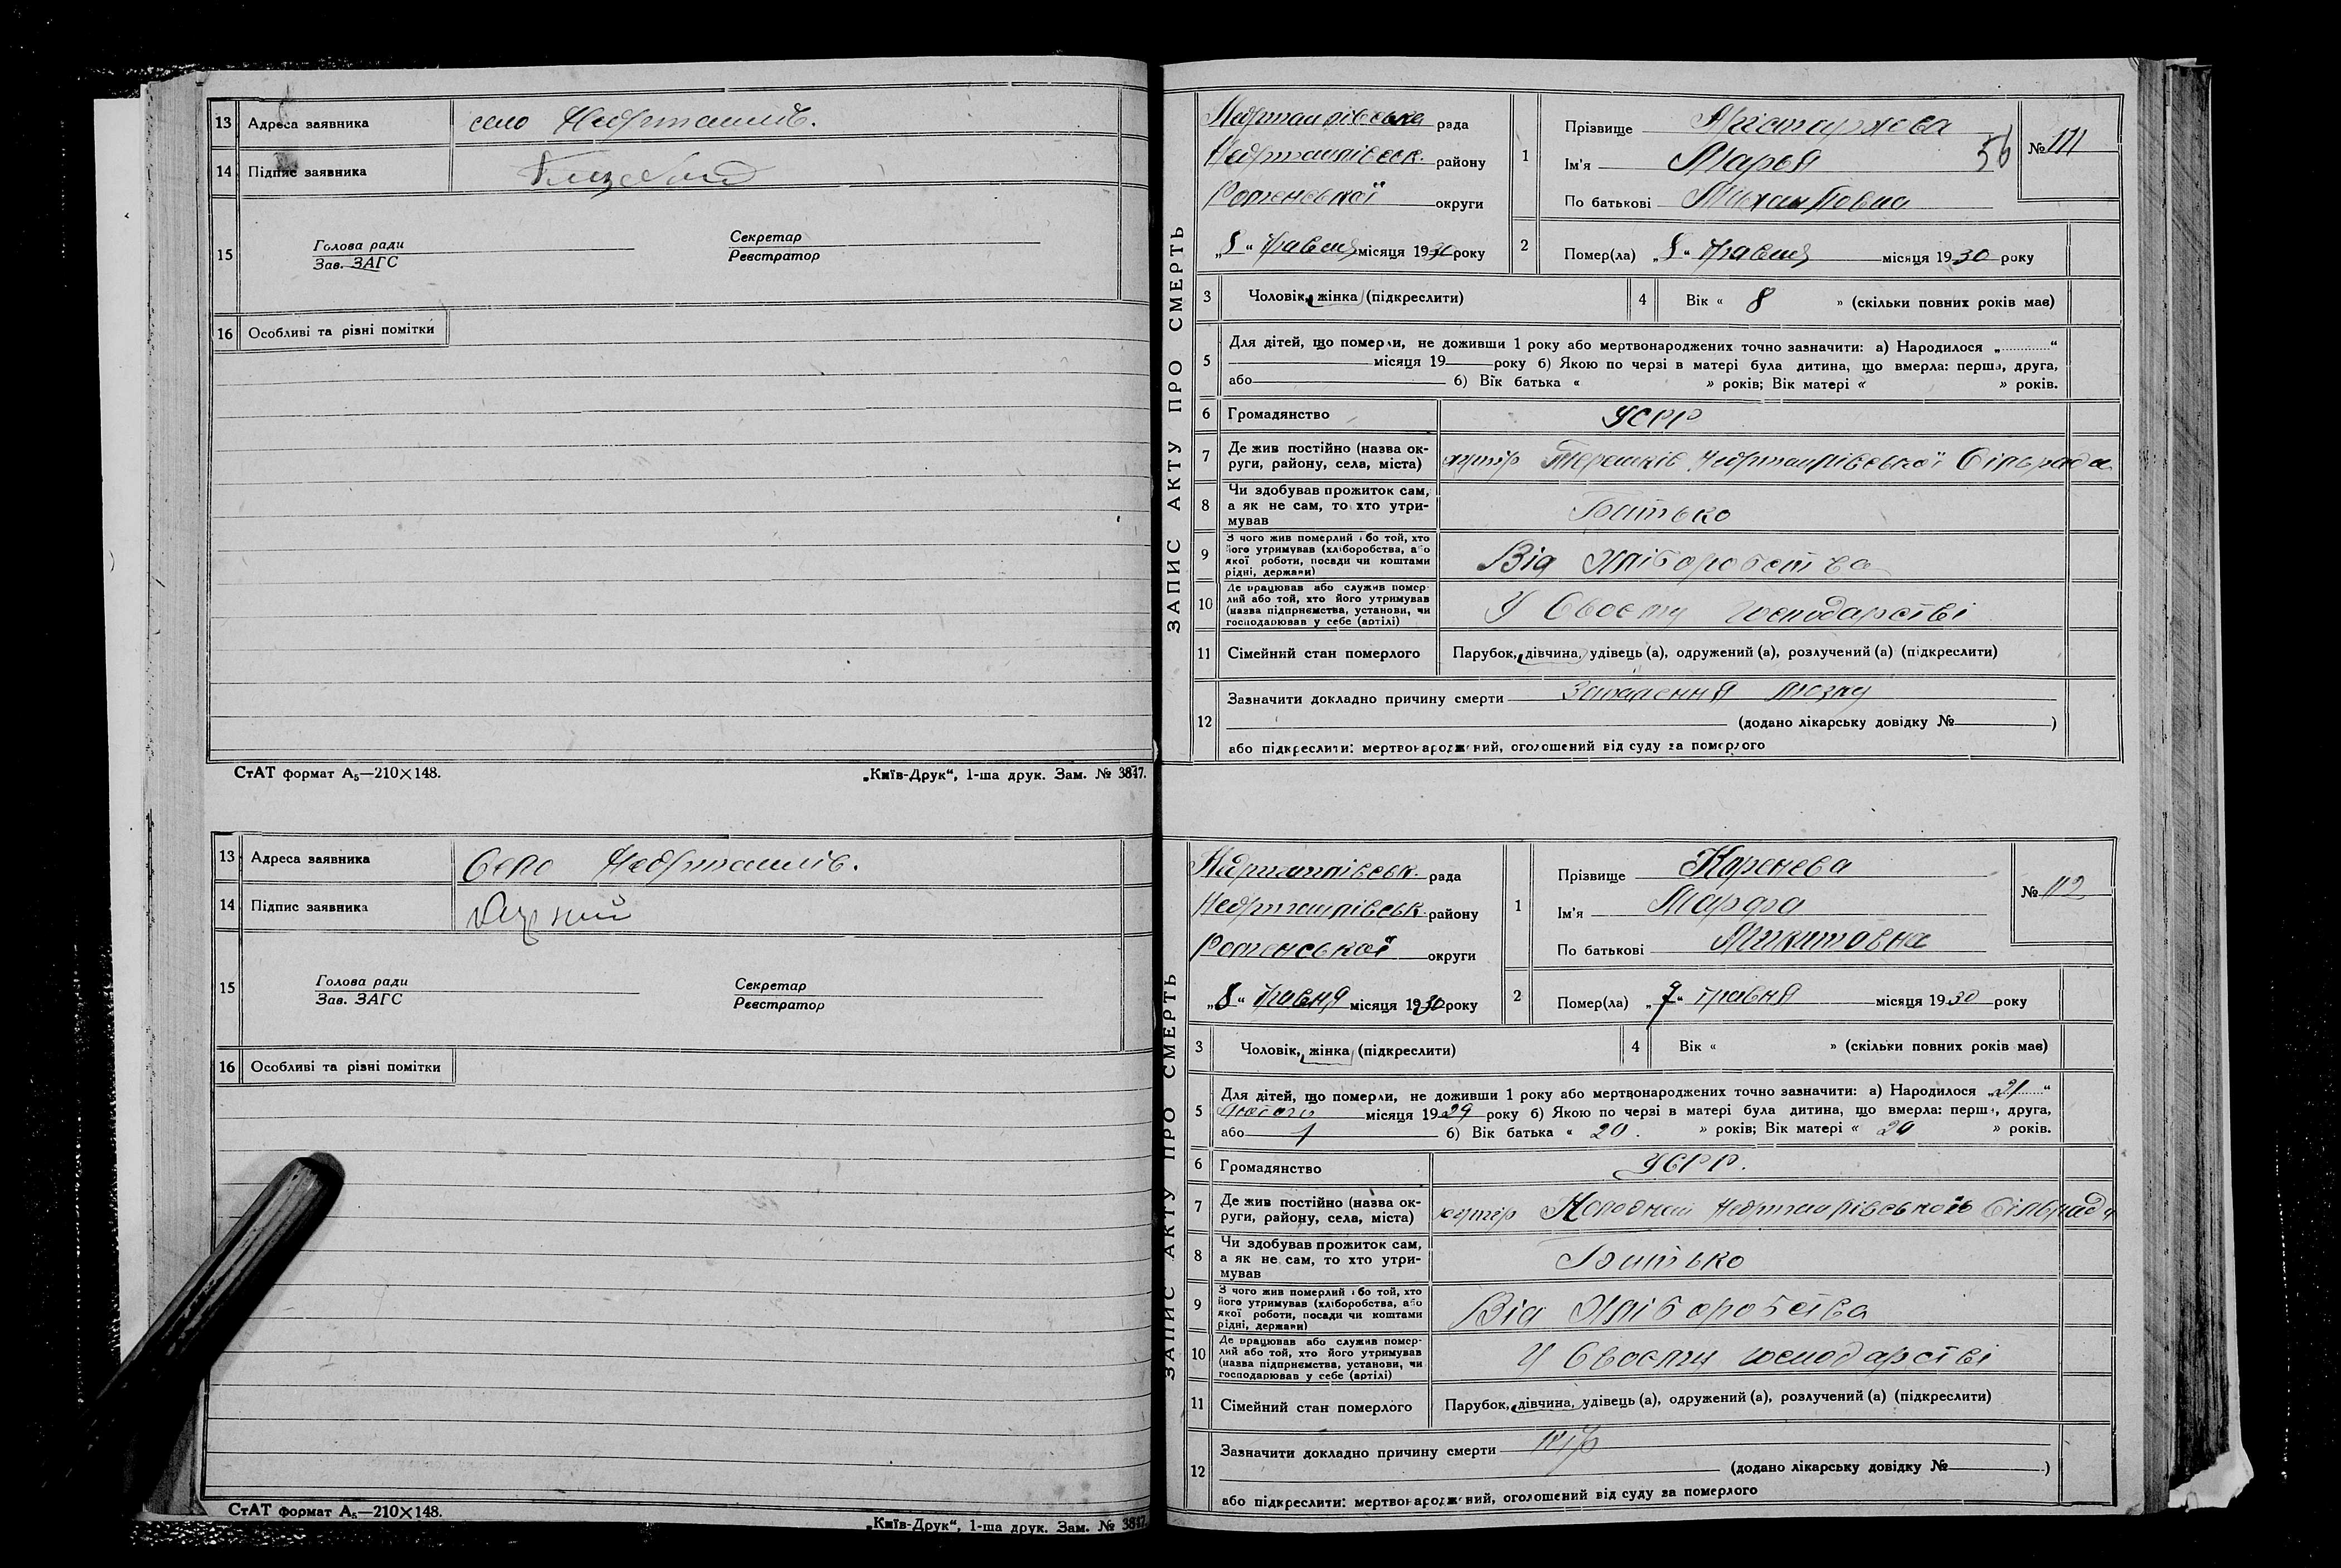 13 Адреса заявника село Недригайлів.
14 Підпис заявника
15 Голова ради
Зав. ЗАГС
Секретар
Реєстратор
16 Особливі та різні помітки
СтАТ формат А₅—210×148.
„Київ-Друк“, 1-ша друк. Зам. № 3847.
13 Адреса заявника Село Недригайлів.
14 Підпис заявника
15 Голова ради
Зав. ЗАГС
Секретар
Реєстратор
16 Особливі та різні помітки
СтАТ формат А₅—210×148.
„Київ-Друк“, 1-ша друк. Зам. № 3847.
ЗАПИС АКТУ ПРО СМЕРТЬ
Недригайлівська рада
Недригайлівськ. району
Роменської округи
„8“ Травня місяця 1930 року
1 Прізвище
Ім'я Марья
По батькові Михайловна
56
№ 111
2 Помер(ла) „8“ травня місяця 1930 року
3 Чоловік, жінка (підкреслити)
4 Вік « 8 » (скільки повних років має)
5 Для дітей, що померли, не доживши 1 року або мертвонароджених точно зазначити: а) Народилося „ “
місяця 19 року б) Якою по черзі в матері була дитина, що вмерла: перша, друга,
або б) Вік батька « » років; Вік матері « » років.
6 Громадянство УСРР
7 Де жив постійно (назва округи, району, села, міста) хутір Терешків Недригайлівської Сільради
8 Чи здобував прожиток сам,
а як не сам, то хто утри-
мував Батько
9 З чого жив померлий або той, хто
його утримував (хліборобства, або
якої роботи, посади чи коштами
рідні, держави) Від Хліборобства
10 Де працював або служив помер-
лий або той, хто його утримував
(назва підприємства, установи, чи
господарював у себе (артілі) У Своєму господарстві
11 Сімейний стан померлого Парубок, дівчина, удівець (а), одружений (а), розлучений (а) (підкреслити)
12 Зазначити докладно причину смерти Запалення мозку
(додано лікарську довідку № )
або підкреслити: мертвонароджений, оголошений від суду за померлого
ЗАПИС АКТУ ПРО СМЕРТЬ
Недригайлівськ. рада
Недригайлівськ. району
Роменської округи
„8“ Травня місяця 1930 року
1 Прізвище Коренева
Ім'я Марфа
По батькові Микитовна
№ 112
2 Помер(ла) „7“ травня місяця 1930 року
3 Чоловік, жінка (підкреслити)
4 Вік « » (скільки повних років має)
5 Для дітей, що померли, не доживши 1 року або мертвонароджених точно зазначити: а) Народилося „21“
лютого місяця 1929 року б) Якою по черзі в матері була дитина, що вмерла: перша, друга,
або 1 б) Вік батька « 20 . » років; Вік матері « 20 » років.
6 Громадянство УСРР.
7 Де жив постійно (назва округи, району, села, міста) хутір Недригайлівської Сільради
8 Чи здобував прожиток сам,
а як не сам, то хто утри-
мував Батько
9 З чого жив померлий або той, хто
його утримував (хліборобства, або
якої роботи, посади чи коштами
рідні, держави) Від Хліборобства
10 Де працював або служив помер-
лий або той, хто його утримував
(назва підприємства, установи, чи
господарював у себе (артілі) У Своєму господарстві
11 Сімейний стан померлого Парубок, дівчина, удівець (а), одружений (а), розлучений (а) (підкреслити)
12 Зазначити докладно причину смерти
(додано лікарську довідку № )
або підкреслити: мертвонароджений, оголошений від суду за померлого